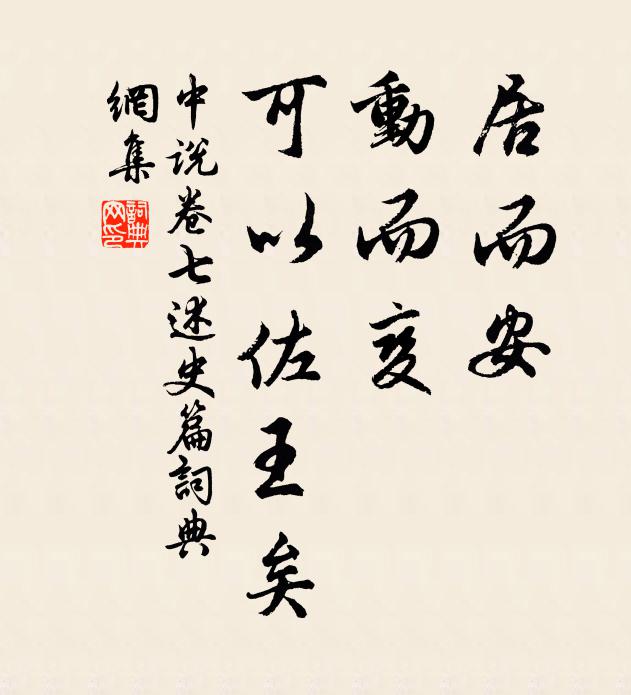 居而安
動而变
可以佐王矣
中说卷七述史篇詞典
網集
詞典
网印